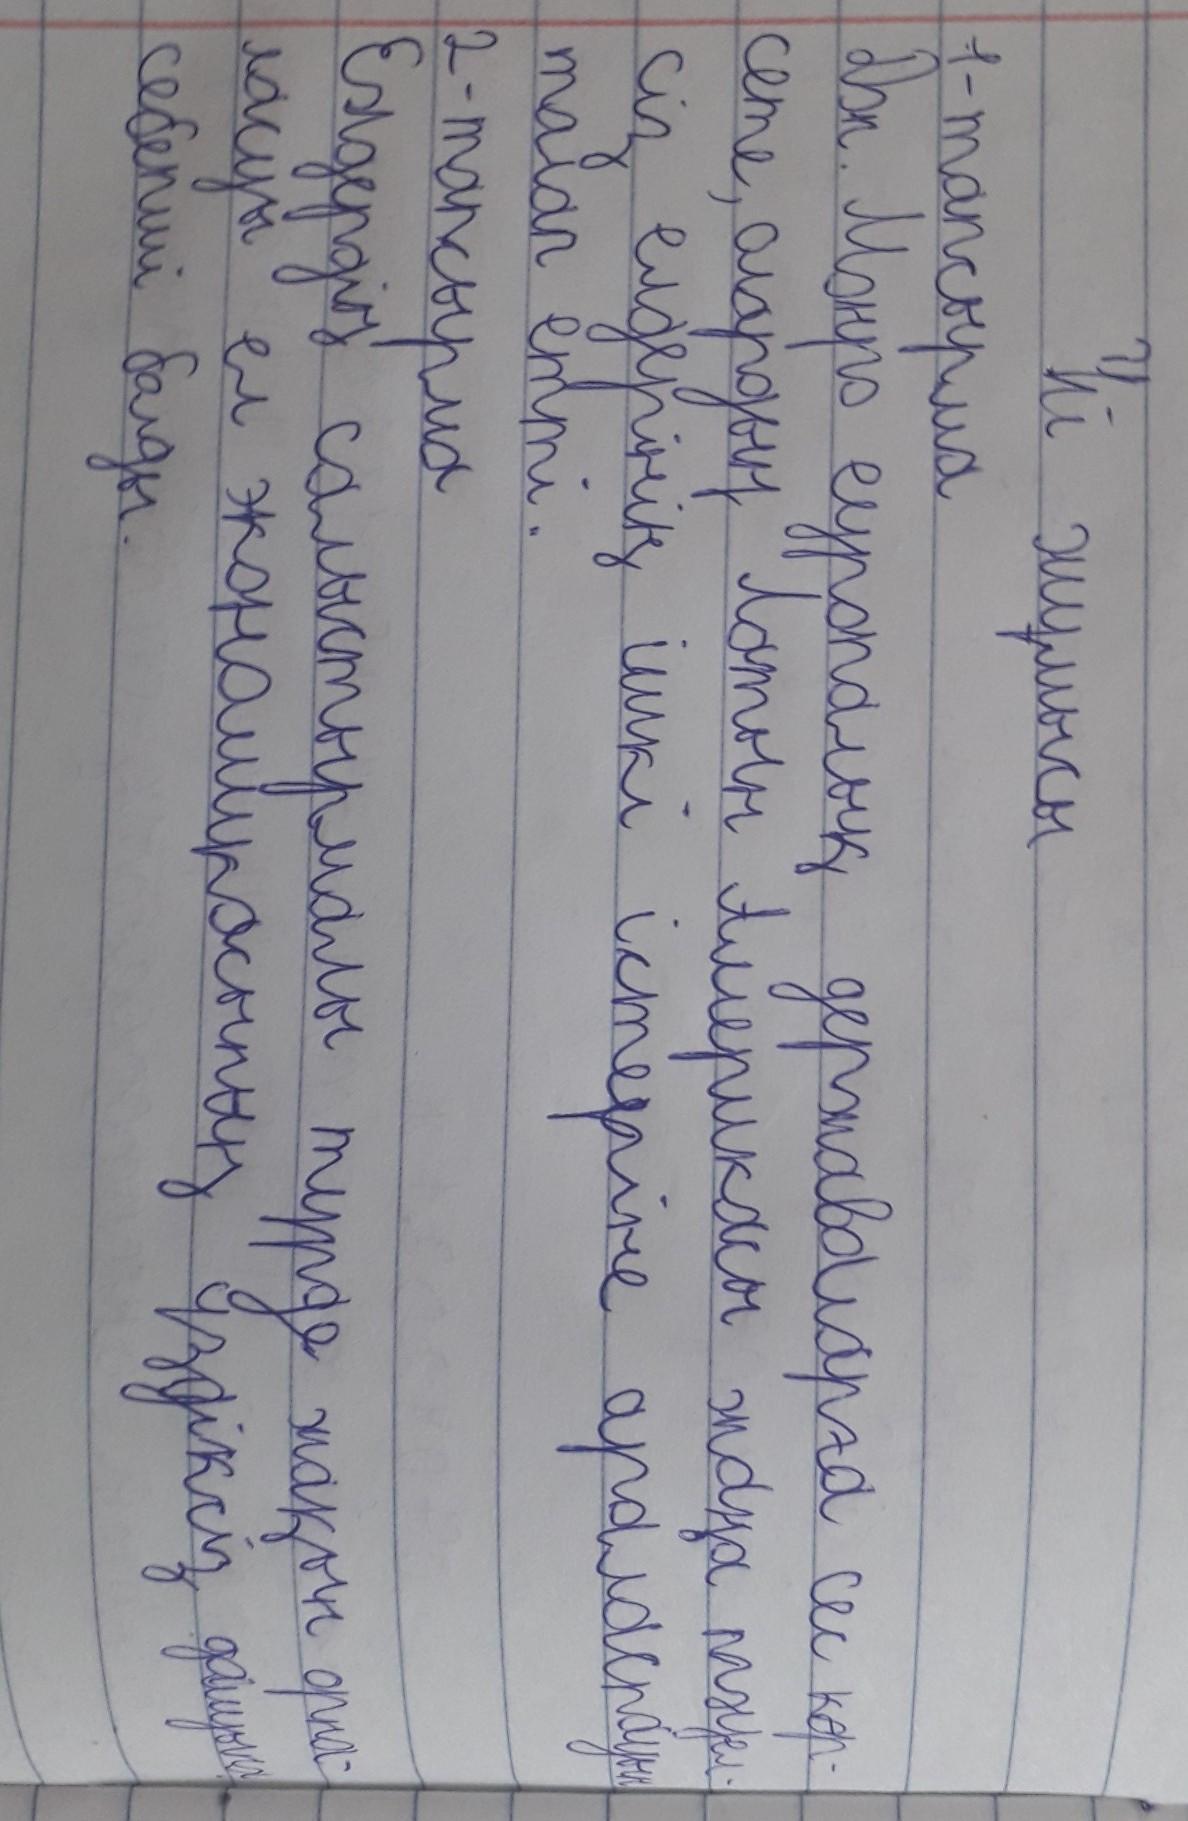 Үй жұмысы
1-тапсырма
Дж. Монро еуропалық державаларға сес көр-
сете, олардың Латын Америкасы жаңа тәуел-
сіз елдерінің ішкі істеріне араласпауын
талап етті.
2-тапсырма
Елдердің салыстырмалы түрде жақын орна-
ласуы ел экономикасының үздіксіз дамуына
себепші болды.